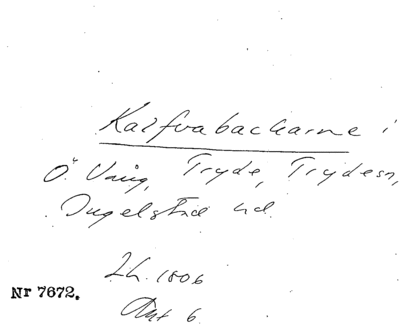 Kalfvabackarne i
Ö. Vång, Tryde, Trydesn,
Ingelstad hd.
Lh. 1806
Nr 7672.
Akt 6